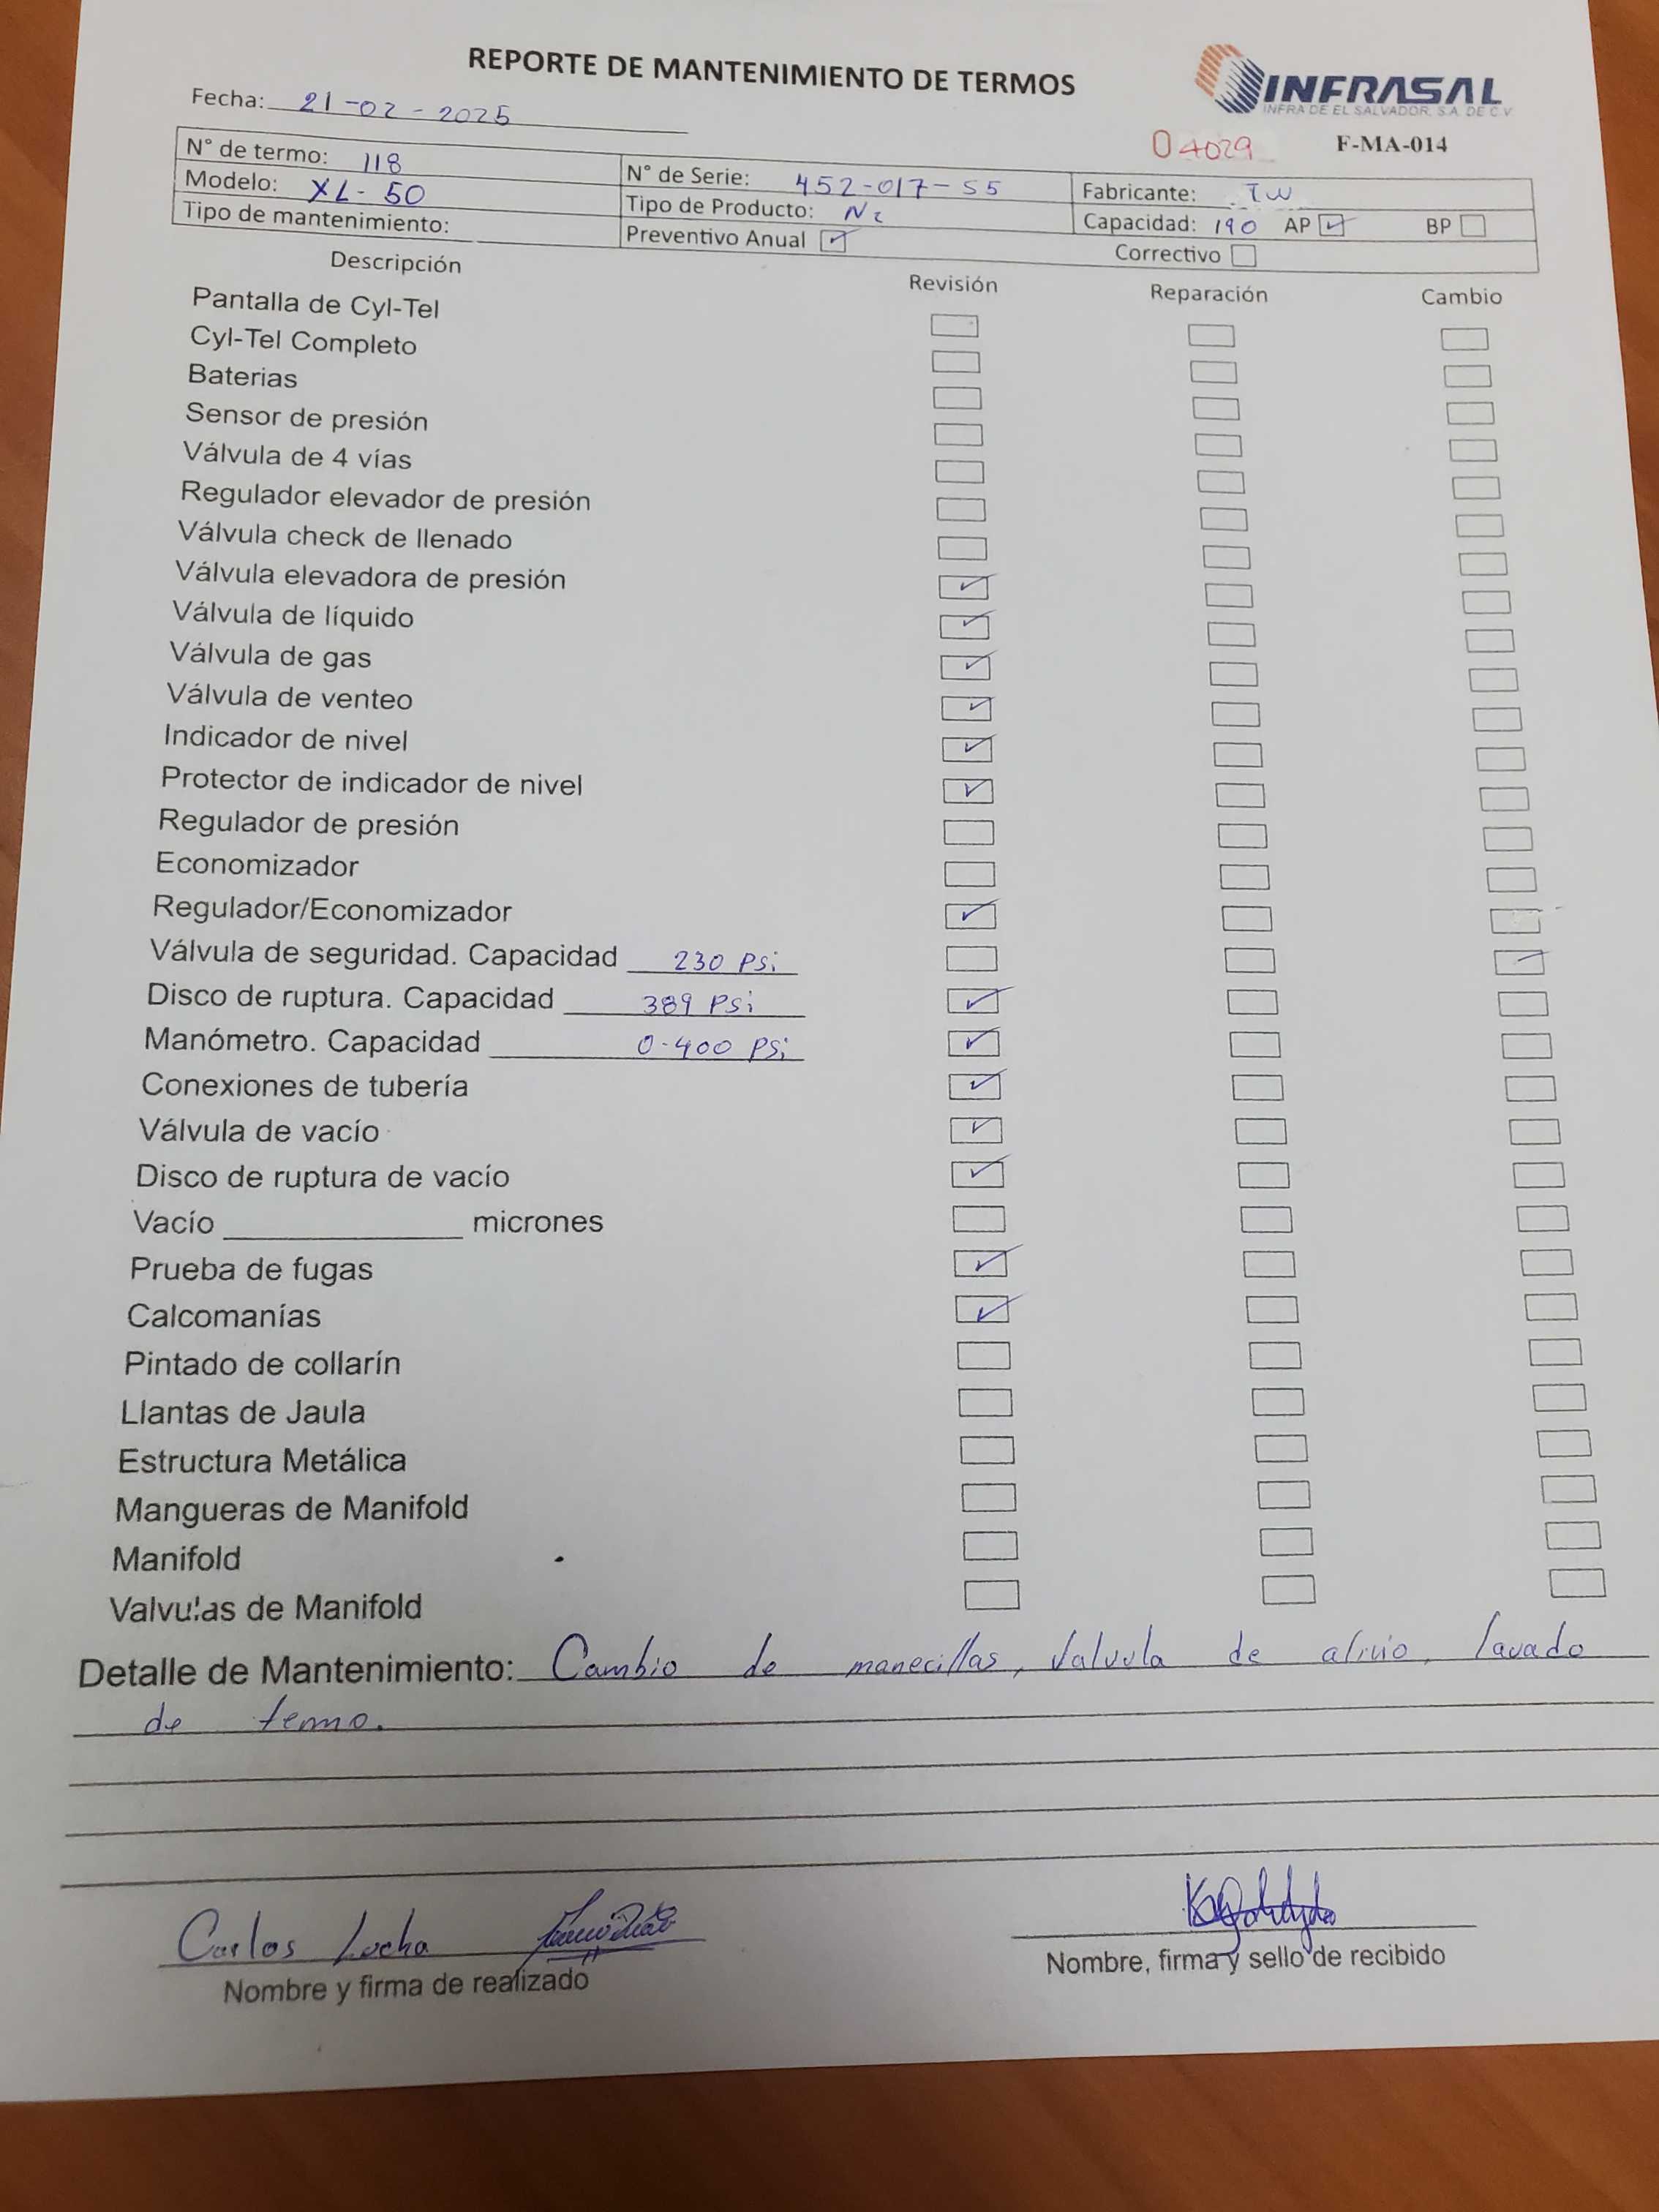 REPORTE DE MANTENIMIENTO DE TERMOS
INFRASAL
INFRA DE EL SALVADOR, S.A. DE C.V
Fecha: 21-02-2025
04029 F-MA-014
N° de termo: 118 N° de Serie: 452-017-55 Fabricante: TW
Modelo: XL-50 Tipo de Producto: N2 Capacidad: 190 AP ✓ BP
Tipo de mantenimiento: Preventivo Anual ✓ Correctivo
Descripción Revisión Reparación Cambio
Pantalla de Cyl-Tel
Cyl-Tel Completo
Baterias
Sensor de presión
Válvula de 4 vías
Regulador elevador de presión
Válvula check de llenado
Válvula elevadora de presión ✓
Válvula de líquido ✓
Válvula de gas ✓
Válvula de venteo ✓
Indicador de nivel ✓
Protector de indicador de nivel ✓
Regulador de presión
Economizador
Regulador/Economizador ✓
Válvula de seguridad. Capacidad 230 PSi ✓
Disco de ruptura. Capacidad 389 PSi ✓
Manómetro. Capacidad 0-400 PSi ✓
Conexiones de tubería ✓
Válvula de vacío ✓
Disco de ruptura de vacío ✓
Vacío micrones
Prueba de fugas ✓
Calcomanías ✓
Pintado de collarín
Llantas de Jaula
Estructura Metálica
Mangueras de Manifold
Manifold
Valvulas de Manifold
Detalle de Mantenimiento: Cambio de manecillas, Valvula de alivio, lavado
de termo.
Carlos Locha
Nombre y firma de realizado
Nombre, firma y sello de recibido